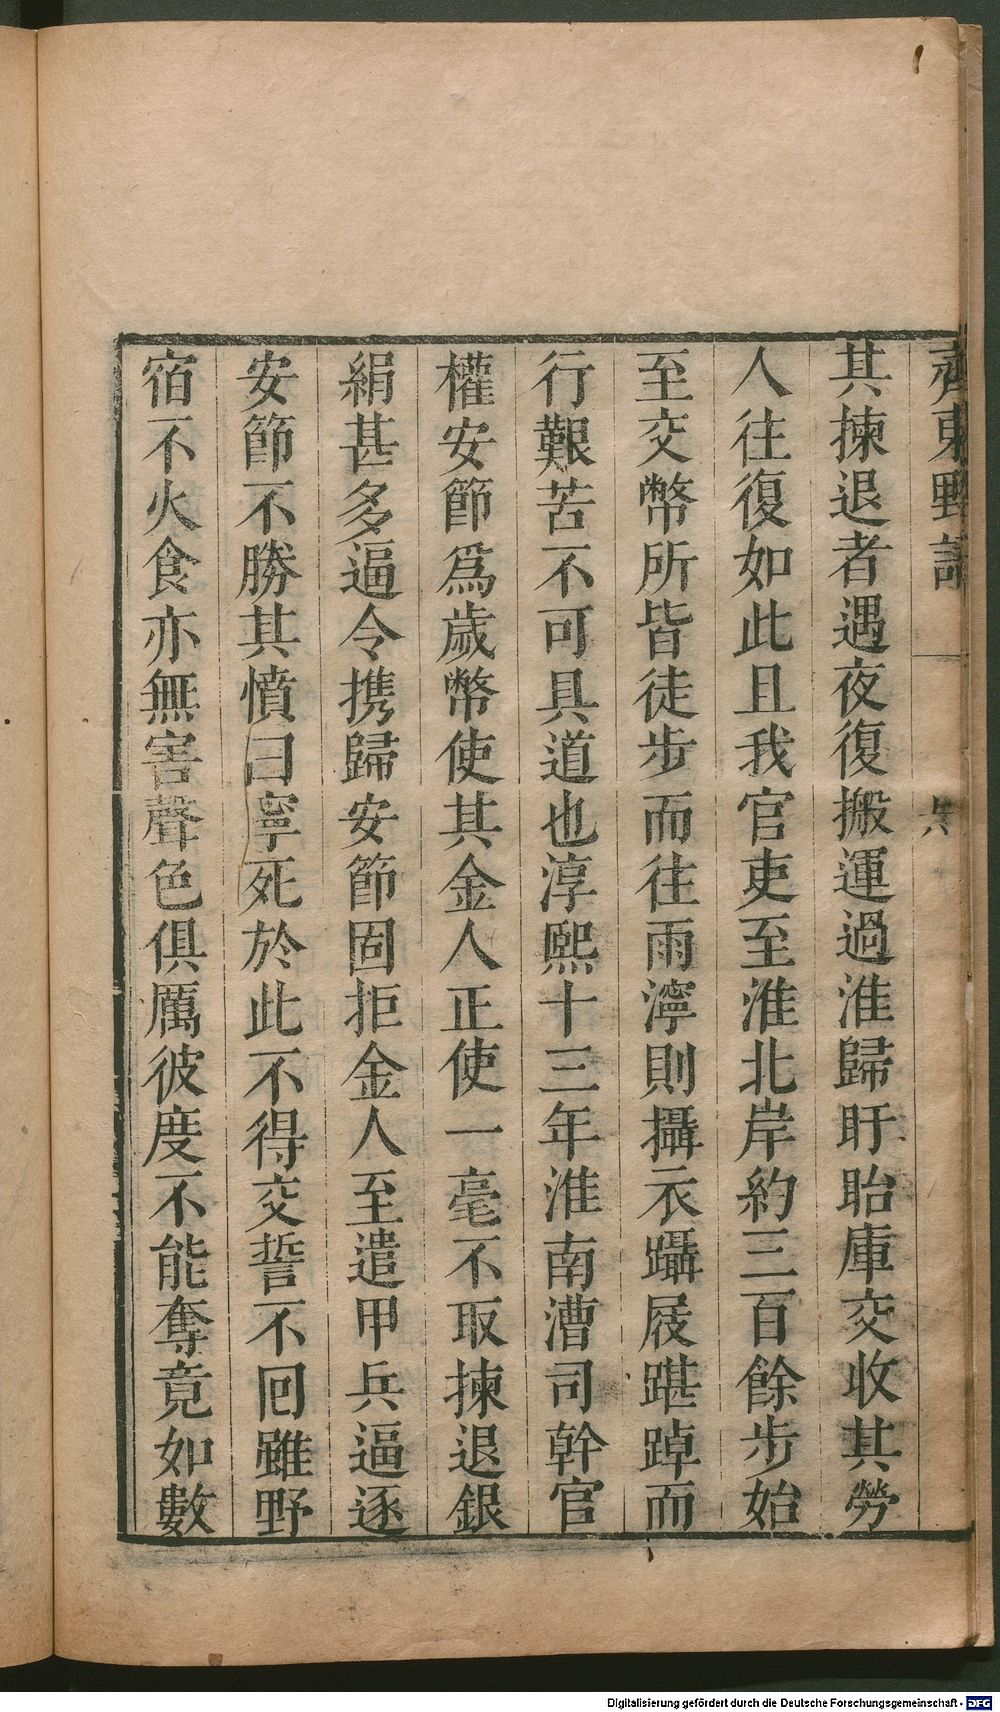 齊東野語
其揀退者遇夜復搬運過淮歸盱眙庫交收其勞
人往復如此且我官吏至淮北岸約三百餘步始
至交幣所皆徒步而往雨濘則攝衣躡屐踸踔而
行艱苦不可具道也淳熙十三年淮南漕司幹官
權安節爲歲幣使其金人正使一毫不取揀退銀
絹甚多逼令携歸安節固拒金人至遣甲兵逼逐
安節不勝其憤曰寧死於此不得交誓不回雖野
宿不火食亦無害聲色俱厲彼度不能奪竟如數
Digitalisierung gefördert durch die Deutsche Forschungsgemeinschaft - DFG